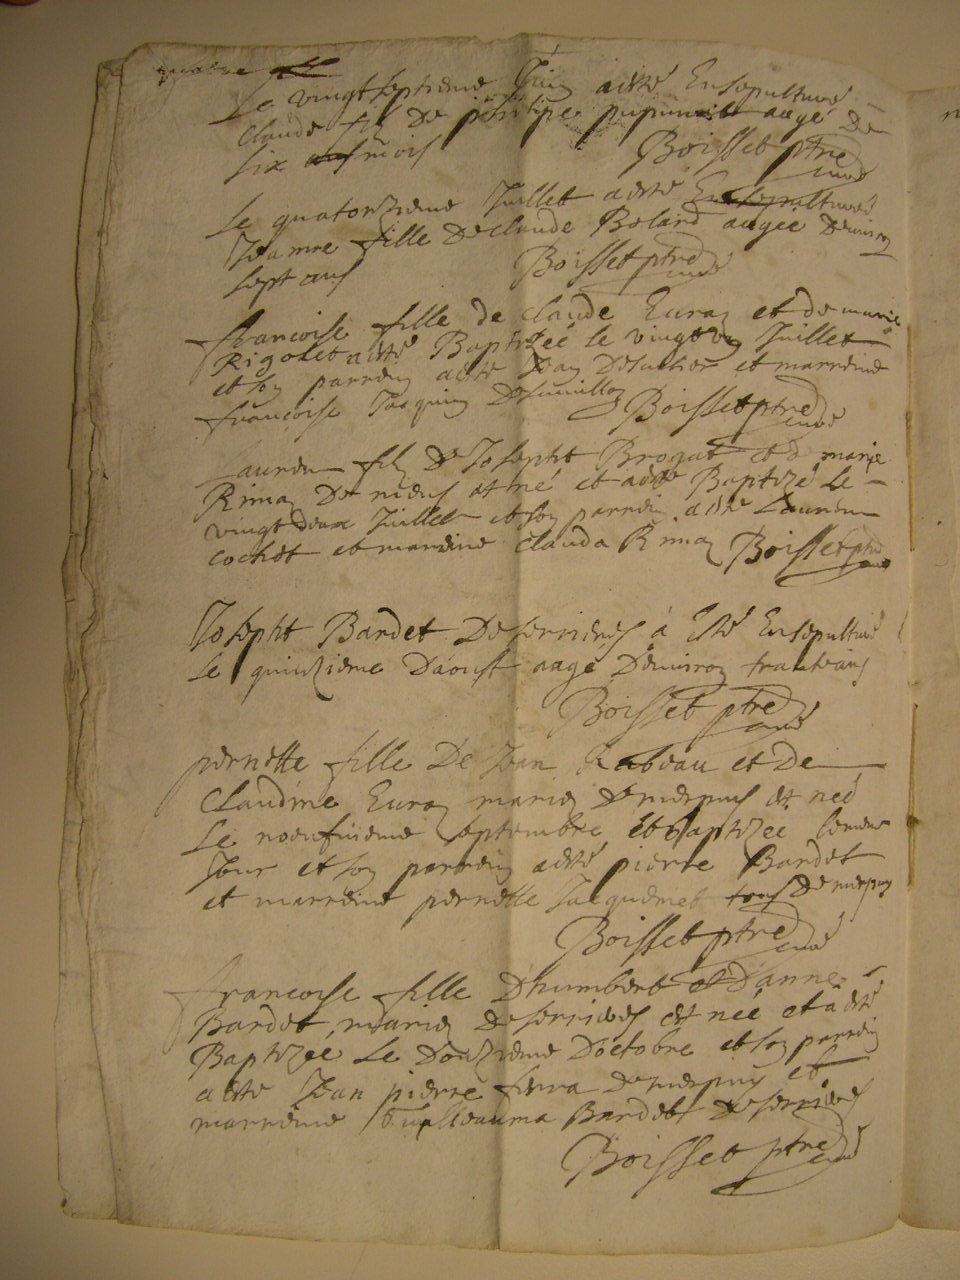 Le vingtseptieme Juin aesté Ensepulturé
Claude fils De philipe aagé De
six mois Boisset ptre curé
Le quatorzieme Juillet aesté Ensepulturéé
Jeanne fille De claude Bolard aagéé Denviron
sept ans Boisset ptre curé
francoise fille de claude Euraz et de marie
Rigolet aesté Baptizéé le vingt Juillet
et son parrein aesté Jean et marreine
francoise Jacquin Boisset ptre curé
Laurent filz De Josepht Brogat et de marie
Rimaz De est né et aesté Baptizé Le
vingt deux Juillet et son parrein aesté Laurent
cochet et mareine clauda Rimaz Boisset ptre curé
Josepht Bardet De serrieres á Esté Ensepulturé
Le quinzieme Daoust aagé Denviron trante ans
Boisset ptre curé
pernette fille De Jean Rabeau et De
Claudine Euraz mariez De merpuis est néé
Le noeufuieme septembre et baptizéé le meme
Jour et son parrein aesté pierre Bardet
et marreine pernette Jacquemet tous De merpuis
Boisset ptre curé
francoise fille Dhumbert et Danne
Bardet mariez De serrieres est néé et à esté
Baptizéé Le Douzieme Doctobre et son parrein
aesté Jean pierre ferra De merpuis et
marreine Guilleauma Bardet De serrieres
Boisset ptre curé